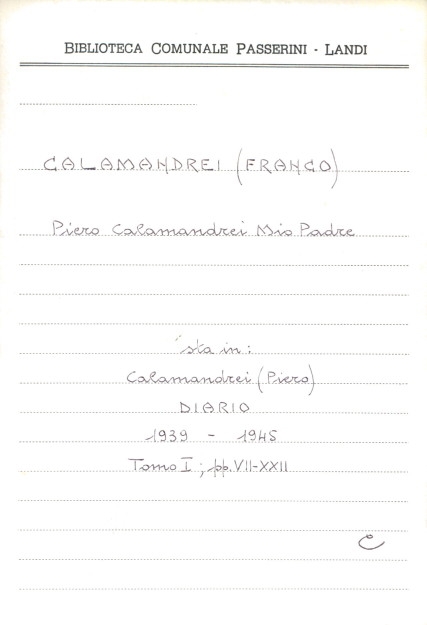 BIBLIOTECA COMUNALE PASSERINI - LANDI
CALAMANDREI (FRANCO)
Piero Calamandrei Mio Padre
sta in:
Calamandrei (Piero)
DIARIO
1939 - 1945
Tomo I; pp. VII-XXII
C